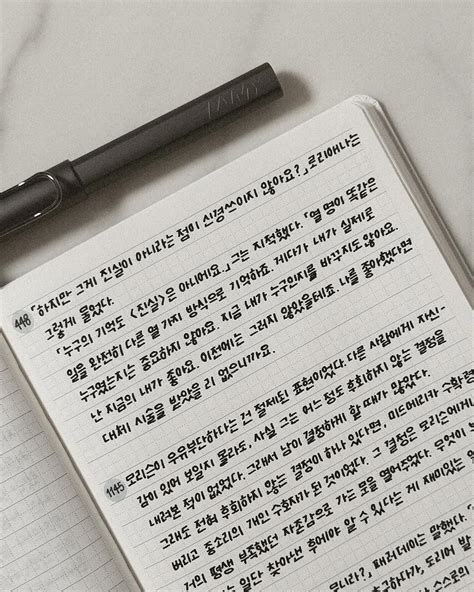 LAMY
448
「하지만 그게 진실이 아니라는 점이 신경쓰이지 않아요?」 로리아나는
그렇게 물었다.
「누구의 기억도 〈진실〉은 아니에요.」 그는 지적했다. 「열 명이 똑같은
일을 완전히 다른 열 가지 방식으로 기억하죠. 게다가 내가 실제로
누구였는지는 중요하지 않아요. 지금 내가 누구인지를 바꾸지도 않아요.
난 지금의 내가 좋아요. 이전에는 그러지 않았을테죠. 나를 좋아했다면
대체 시술을 받았을 리 없으니까요.
1145
모리슨이 우유부단하다는 건 절제된 표현이었다. 다른 사람에게 자신
감이 있어 보일지 몰라도, 사실 그는 어느 정도 후회하지 않는 결정을
내려본 적이 없었다. 그래서 남이 결정하게 할 때가 많았다.
그래도 전혀 후회하지 않는 결정이 하나 있다면, 미드메리카 수확령
버리고 종소리의 개인 수호자가 된 것이었다. 그 결정은 모리슨에게
거의 평생 부족했던 자존감으로 가는 문을 열어주었다. 무엇이
는 일단 찾아낸 후에야 알 수 있다는 게 재미있는
뭐니라?」 패러데이는 말했다.
도리어
스스로의